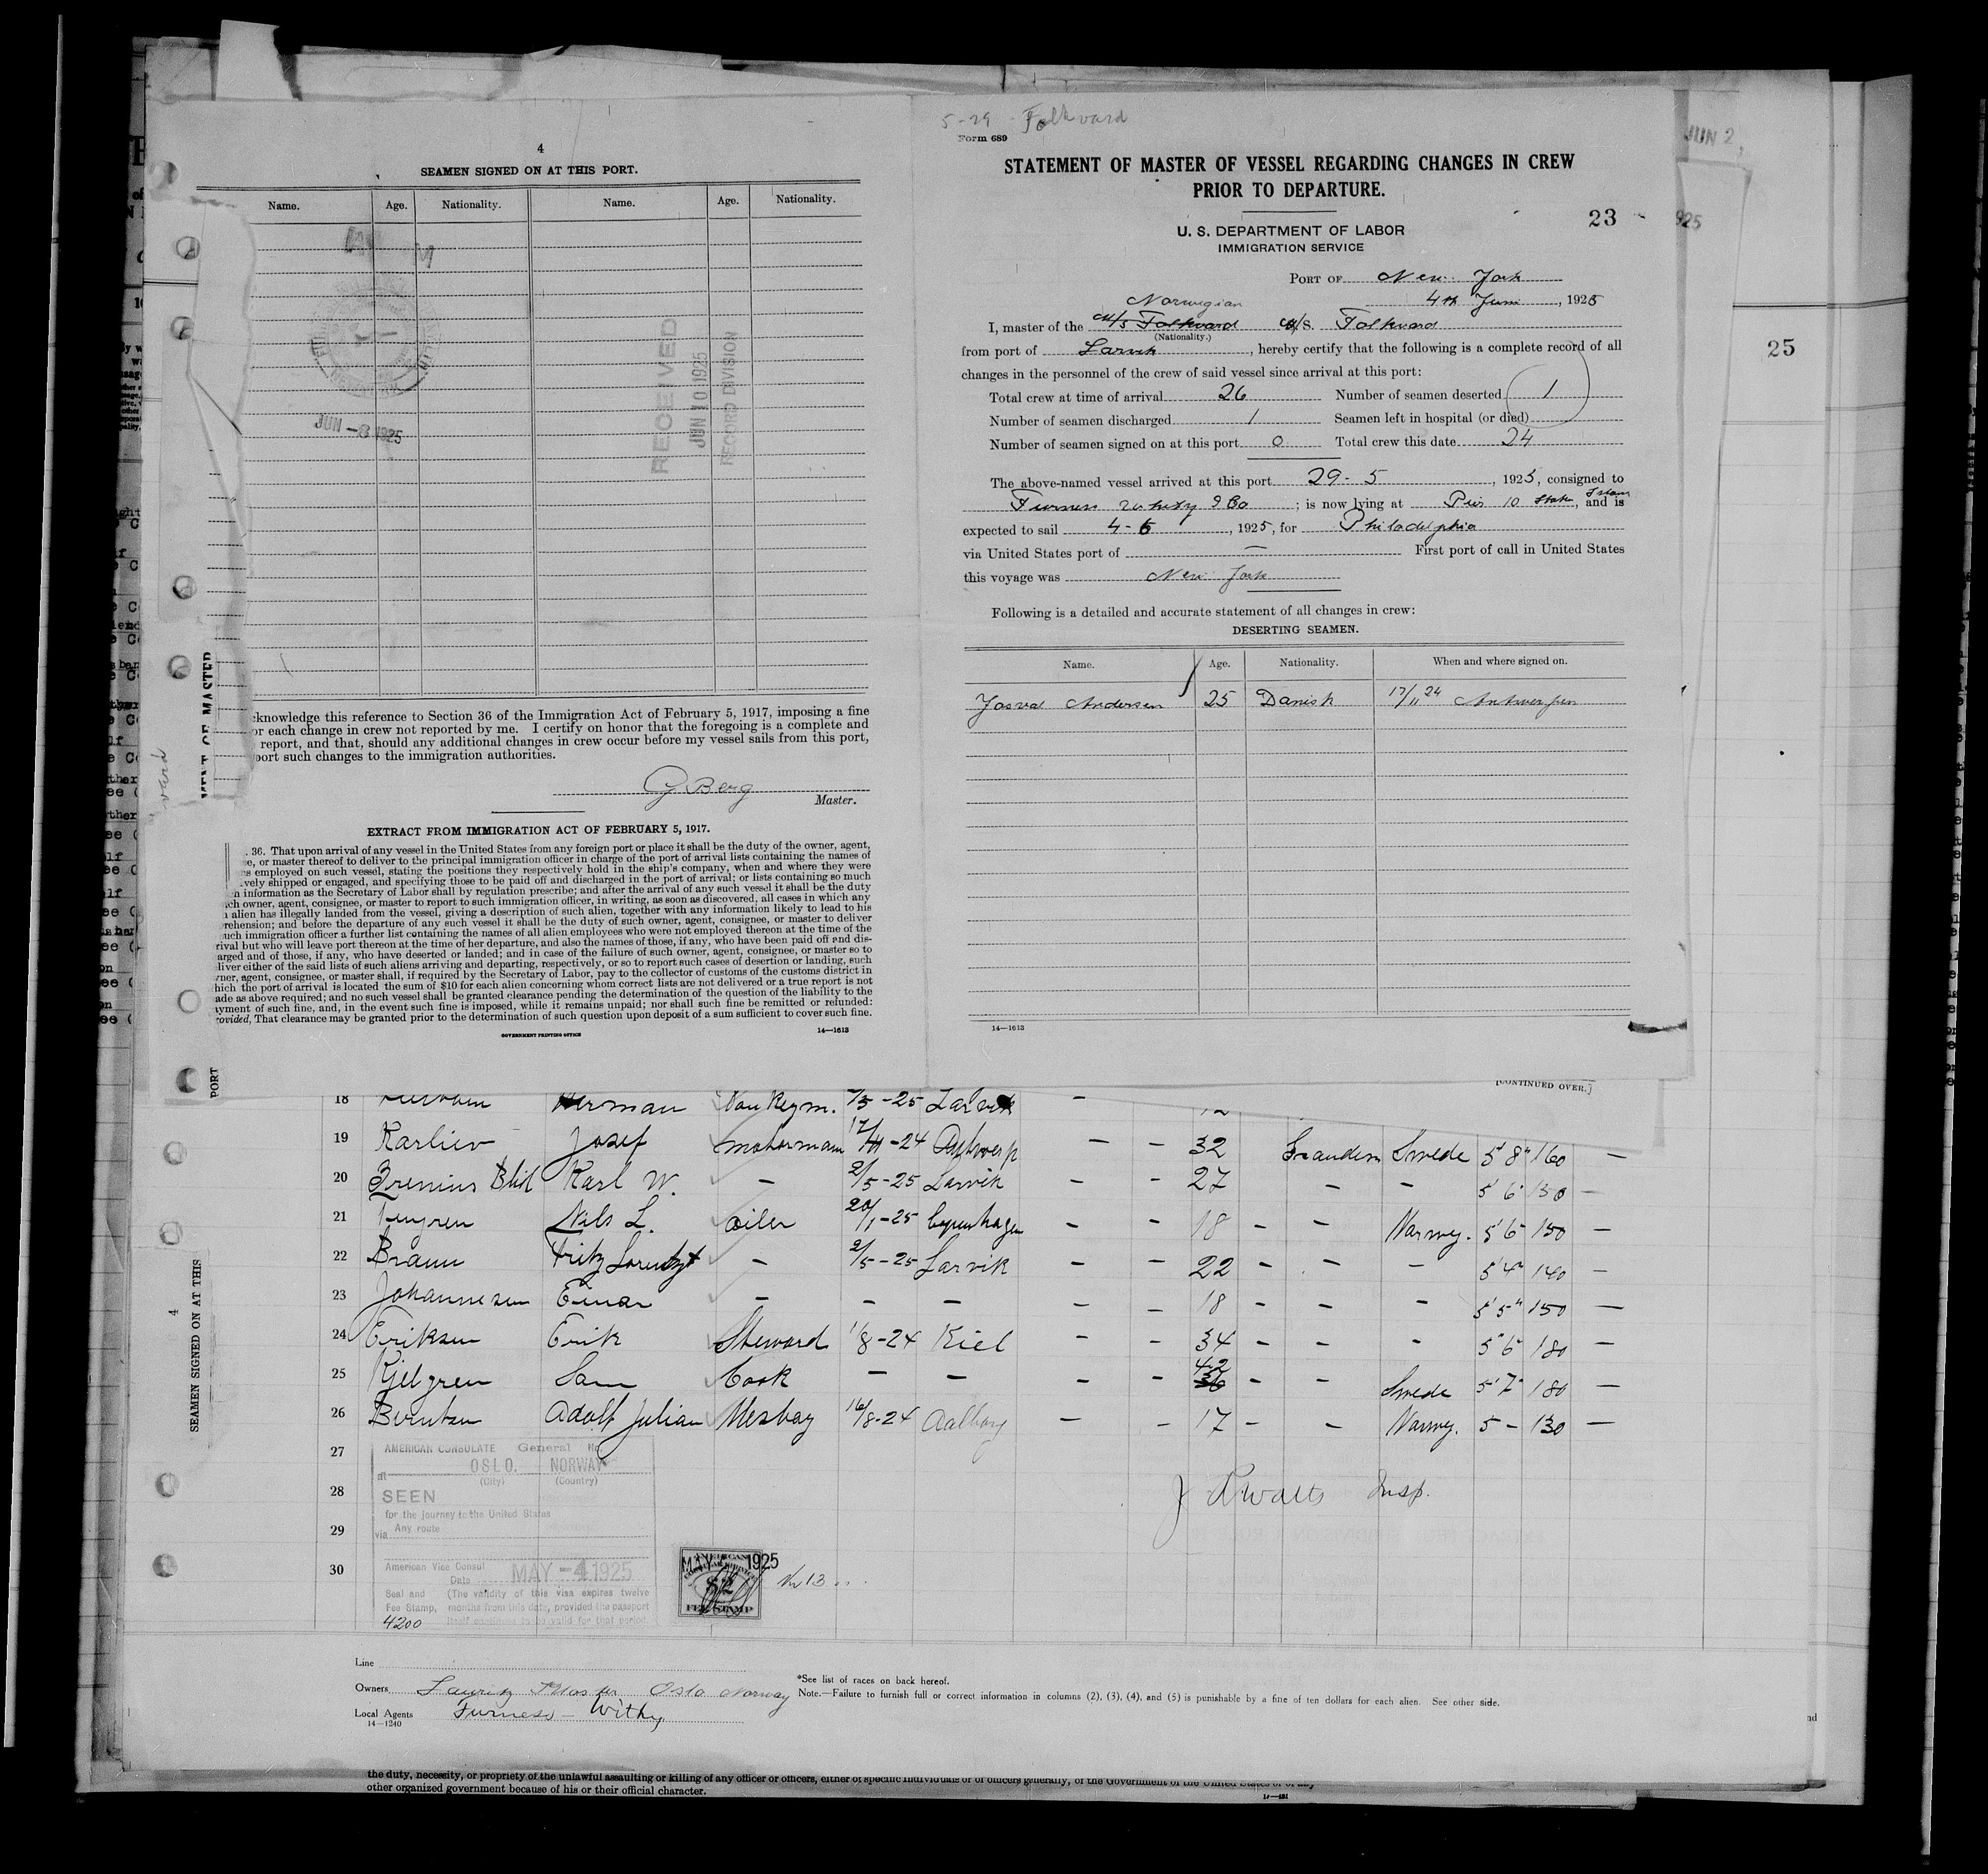 4
SEAMEN SIGNED ON AT THIS PORT.
Name. Age. Nationality. Name. Age. Nationality.
JUN -8 1925
RECEIVED
JUN 10 1925
RECORD DIVISION
cknowledge this reference to Section 36 of the Immigration Act of February 5, 1917, imposing a fine
or each change in crew not reported by me. I certify on honor that the foregoing is a complete and
report, and that, should any additional changes in crew occur before my vessel sails from this port,
port such changes to the immigration authorities.
G Berg
Master.
EXTRACT FROM IMMIGRATION ACT OF FEBRUARY 5, 1917.
. 36. That upon arrival of any vessel in the United States from any foreign port or place it shall be the duty of the owner, agent,
e, or master thereof to deliver to the principal immigration officer in charge of the port of arrival lists containing the names of
ns employed on such vessel, stating the positions they respectively hold in the ship's company, when and where they were
vely shipped or engaged, and specifying those to be paid off and discharged in the port of arrival; or lists containing so much
h information as the Secretary of Labor shall by regulation prescribe; and after the arrival of any such vessel it shall be the duty
ch owner, agent, consignee, or master to report to such immigration officer, in writing, as soon as discovered, all cases in which any
alien has illegally landed from the vessel, giving a description of such alien, together with any information likely to lead to his
rehension; and before the departure of any such vessel it shall be the duty of such owner, agent, consignee, or master to deliver
uch immigration officer a further list containing the names of all alien employees who were not employed thereon at the time of the
rival but who will leave port thereon at the time of her departure, and also the names of those, if any, who have been paid off and dis-
arged and of those, if any, who have deserted or landed; and in case of the failure of such owner, agent, consignee, or master so to
liver either of the said lists of such aliens arriving and departing, respectively, or so to report such cases of desertion or landing, such
ner, agent, consignee, or master shall, if required by the Secretary of Labor, pay to the collector of customs of the customs district in
hich the port of arrival is located the sum of $10 for each alien concerning whom correct lists are not delivered or a true report is not
ade as above required; and no such vessel shall be granted clearance pending the determination of the question of the liability to the
yment of such fine, and, in the event such fine is imposed, while it remains unpaid; nor shall such fine be remitted or refunded:
rovided, That clearance may be granted prior to the determination of such question upon deposit of a sum sufficient to cover such fine.
GOVERNMENT PRINTING OFFICE
14—1613
5-29 - Folkvard
Form 689
STATEMENT OF MASTER OF VESSEL REGARDING CHANGES IN CREW
PRIOR TO DEPARTURE.
23
U. S. DEPARTMENT OF LABOR
IMMIGRATION SERVICE
PORT OF New York
4th Juni, 1925
Norwegian
I, master of the M/S Folkvard M/S. Folkvard
(Nationality.)
from port of Larvik, hereby certify that the following is a complete record of all
changes in the personnel of the crew of said vessel since arrival at this port:
Total crew at time of arrival 26 Number of seamen deserted 1
Number of seamen discharged 1 Seamen left in hospital (or died)
Number of seamen signed on at this port 0 Total crew this date 24
The above-named vessel arrived at this port 29-5, 1925, consigned to
Furness Withy & Co; is now lying at Pier 10 Staten Island, and is
expected to sail 4-6, 1925, for Philadelphia
via United States port of — First port of call in United States
this voyage was New York
Following is a detailed and accurate statement of all changes in crew:
DESERTING SEAMEN.
Name. Age. Nationality. When and where signed on.
Andersen 25 Danish 17/11 24 Antwerpen
14—1613
JUN 2,
925
25
[CONTINUED OVER.]
MENT OF MASTER
PORT
4
SEAMEN SIGNED ON AT THIS
18 Herman 7/5-25 Larvik -
19 Karliev Josef motorman 17/11-24 Antwerp - - 32 Swede 5'8" 160 -
20 Karl W. - 2/5-25 Larvik - - 27 - - 5'6" 150 -
21 Nils L. oiler 20/1-25 Copenhagen - - 18 - - Norweg. 5'6" 150 -
22 Braun Fritz Lorentz - 2/5-25 Larvik - - 22 - - - 5'4" 140 -
23 Johannesen Einar - - - - - 18 - - - 5'5" 150 -
24 Eriksen Erik Steward 1/8-24 Kiel - - 34 - - - 5'6" 180 -
25 Kjelgren Sam Cook - - - - 42 36 - - Swede 5'7" 180 -
26 Berntsen Adolf Julian Messboy 16/8-24 Aalborg - - 17 - - Norweg. 5- 130 -
27
28
29
30
AMERICAN CONSULATE General
at OSLO. NORWAY
(City) (Country)
SEEN
for the journey to the United States
via Any route
American Vice Consul
Date MAY -4 1925
Seal and (The validity of this visa expires twelve
Fee Stamp, months from this date, provided the passport
itself continues to be valid for that period.
4200
MAY 1925
AMERICAN
$2
FEE STAMP
No 13
Insp.
Line
Owners Oslo Norway
Local Agents Furness-Withy
14—1240
*See list of races on back hereof.
Note.—Failure to furnish full or correct information in columns (2), (3), (4), and (5) is punishable by a fine of ten dollars for each alien. See other side.
the duty, necessity, or propriety of the unlawful assaulting or killing of any officer or officers, either of specific individuals or of officers generally, of the Government of the United States or of any
other organized government because of his or their official character.